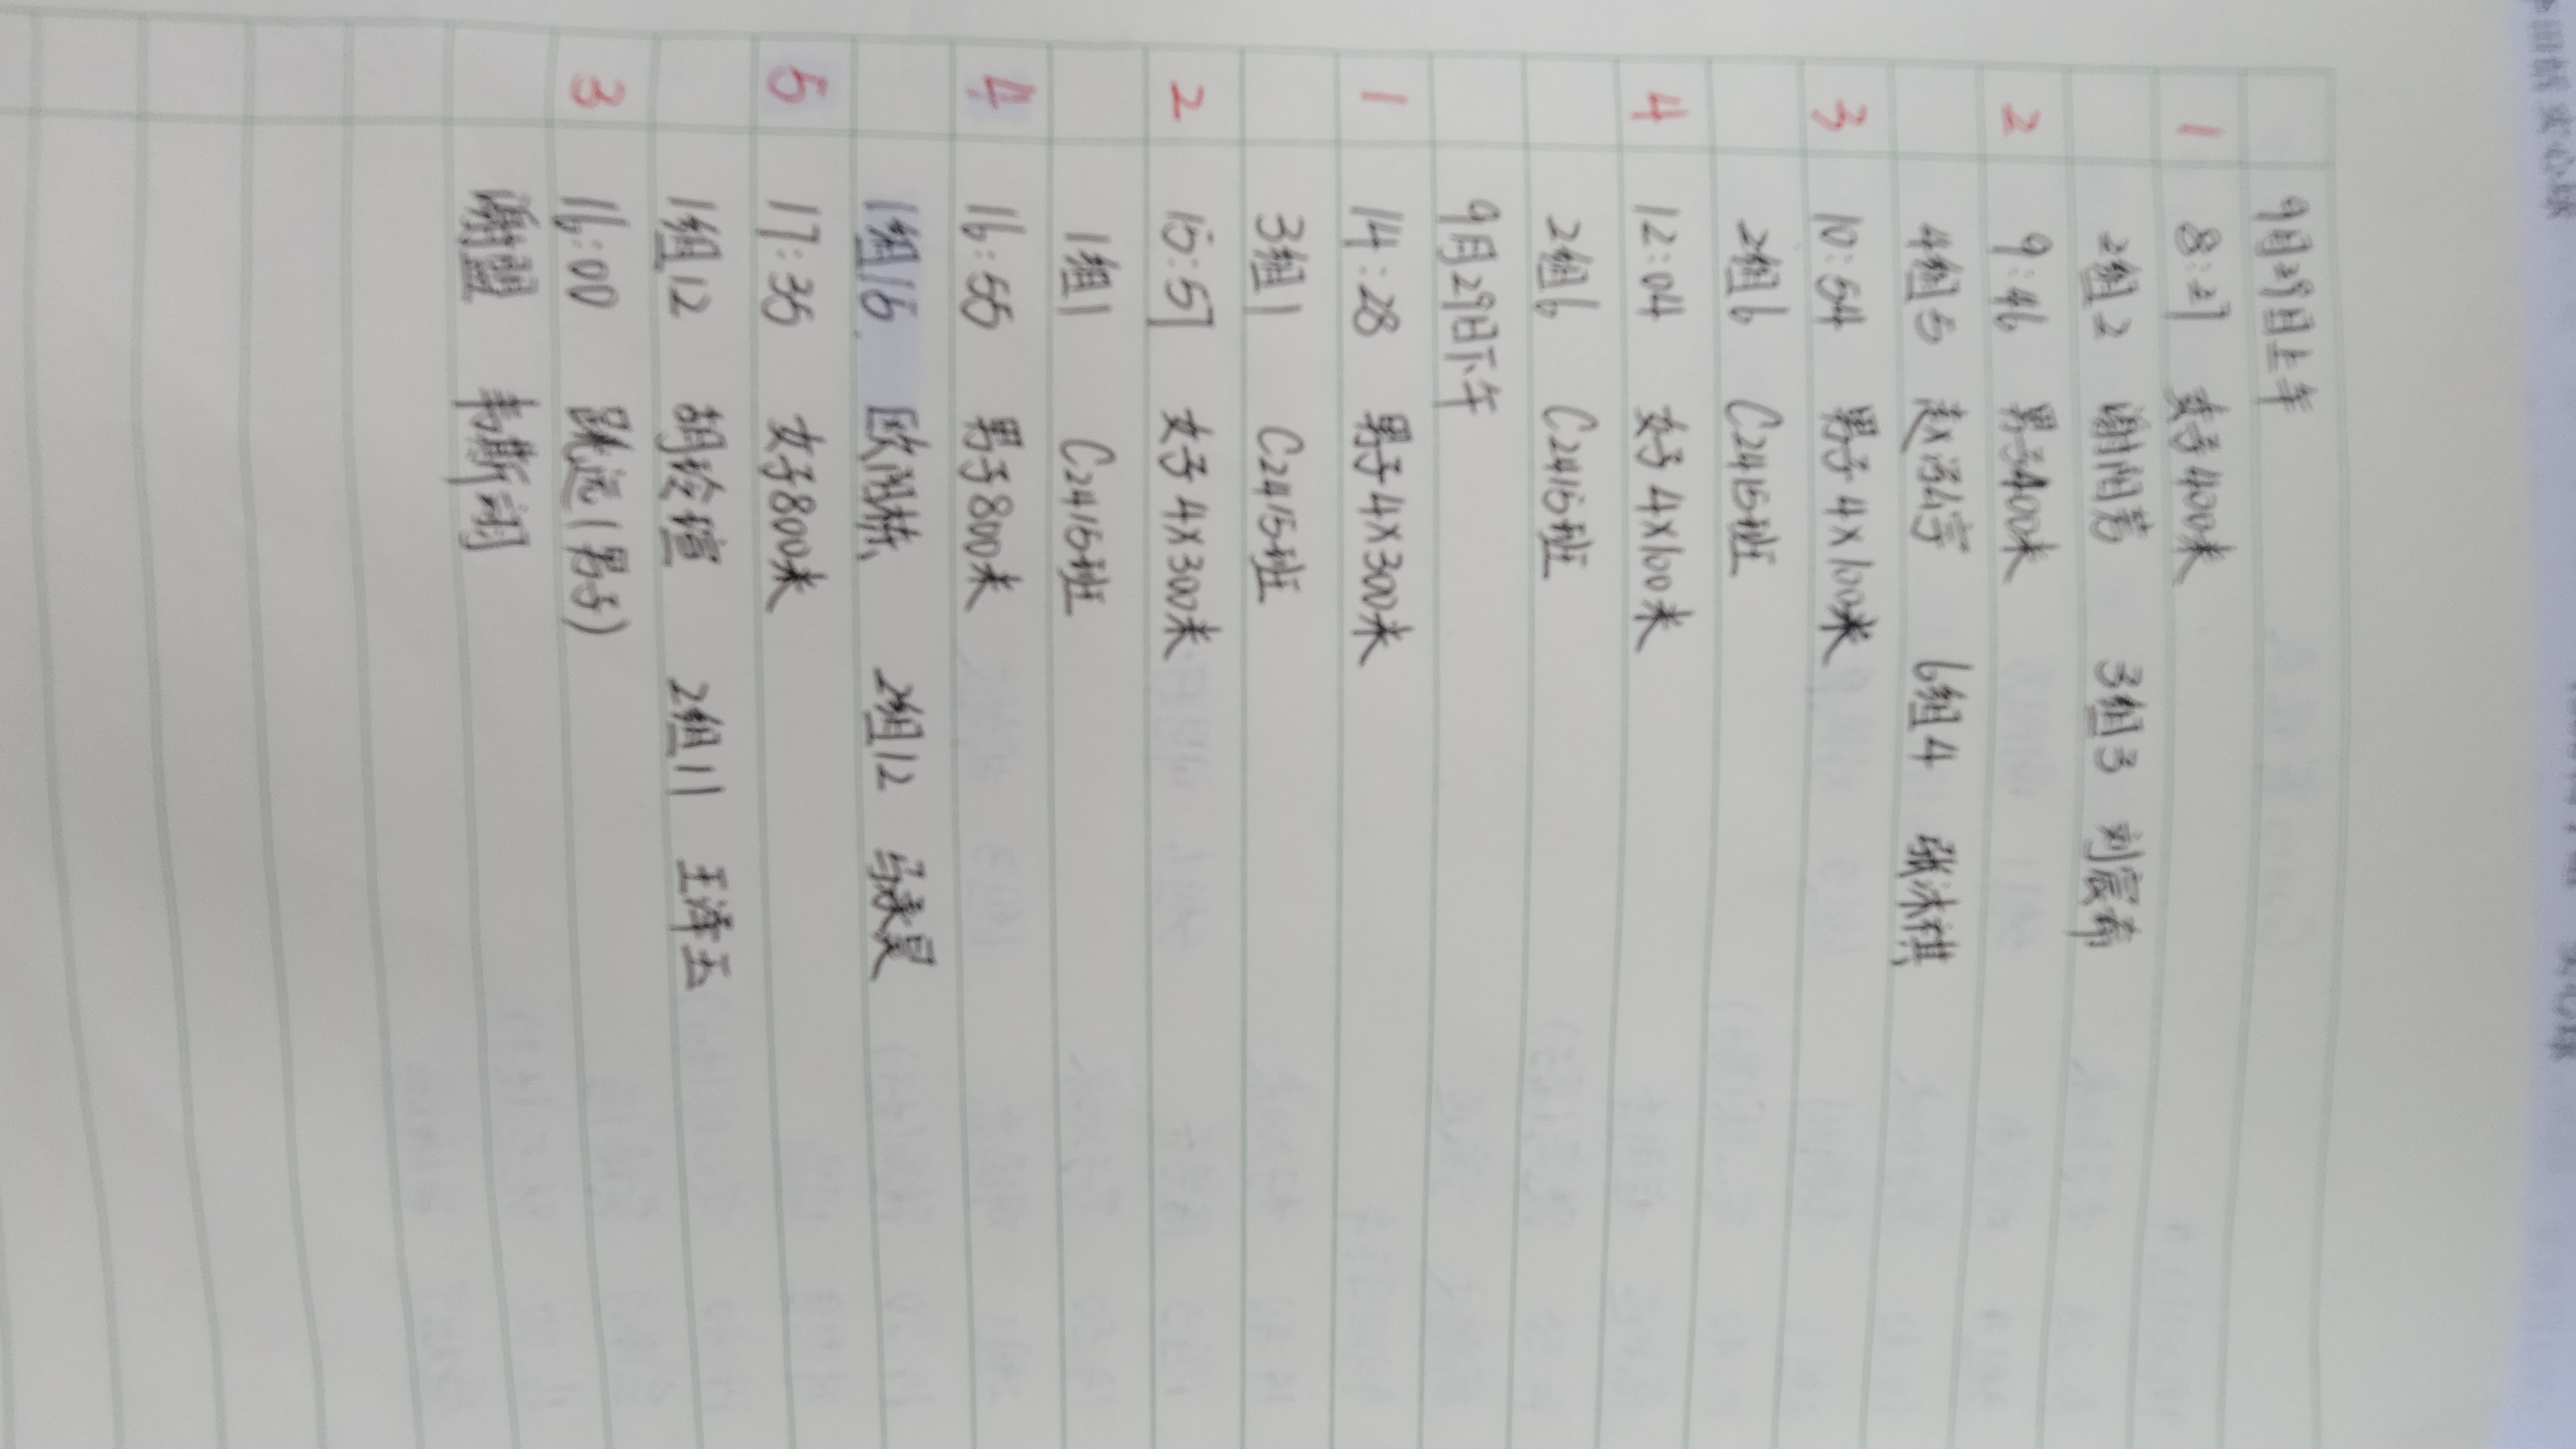 实心球
实心球
9月29日上午
1 8:27 女子400米
2组2 谢阳芳 3组3 刘宸希
2 9:46 男子400米
4组5 赵泓宇 6组4 张沐祺
3 10:54 男子4×100米
2组6 C2415班
4 12:04 女子4×100米
2组6 C2415班
9月29日下午
1 14:28 男子4×300米
3组1 C2415班
2 15:57 女子4×300米
1组1 C2415班
4 16:55 男子800米
1组15 欧阳栋 2组12 马承昊
5 17:35 女子800米
1组12 胡玲瑄 2组11 王泽玉
3 16:00 跳远(男子)
谢盟 韦斯翊